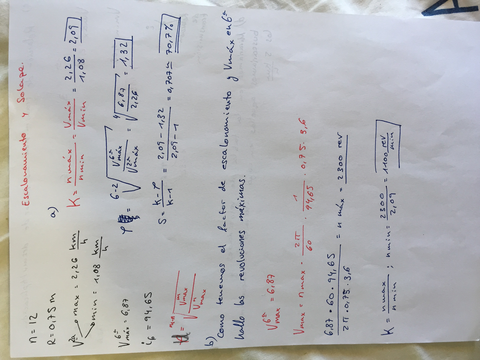 Escalonamiento y Solape.
n = 12
R = 0,75 m
V2ª max = 2,26 km/h
min = 1,08 km/h
V6ª max = 6,87
i6 = 94,65
a)
K = n máx / n min = Vmáx / Vmin = 2,26 / 1,08 = 2,09
φ = 6-2√(V6ª máx / V2ª máx) = 4√(6,87 / 2,26) = 1,32
S = K-φ / K-1 = 2,09 - 1,32 / 2,09 - 1 = 0,707 ≈ 70,7%
b) Como tenemos el factor de escalonamiento y Vmáx en 6ª
hallo las revoluciones máximas.
V6ª max = 6,87
Vmax = n max · 2π / 60 · 1 / 94,65 · 0,75 · 3,6
6,87 · 60 · 94,65 / 2π · 0,75 · 3,6 = n máx = 2300 rev
K = n max / n min ; n min = 2300 / 2,09 = 1100 rev/min